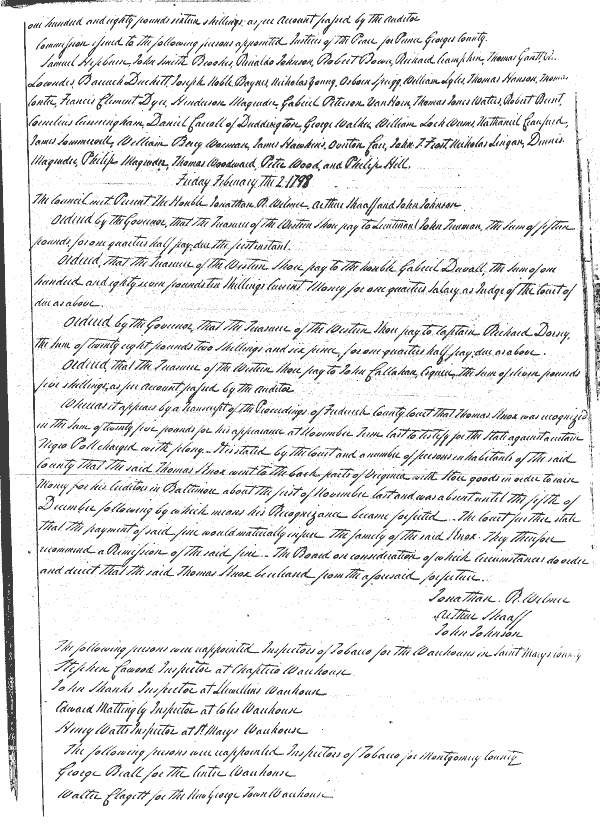 one hundred and eighty pounds sixteen shillings, as per Account passed by the auditor
Commission issued to the following persons appointed Justices of the Peace for Prince Georges County.
Samuel Hepburn, John Smith Brookes, Rinaldo Johnson, Robert Bowie, Richard Cramphin, Thomas Gantt, Jr.
Lowndes, Baruch Duckett, Joseph Noble Baynes, Nicholas Young, Osborn Sprigg, William Lyles, Thomas Hanson, Thomas
Contee, Francis Clement Dyer, Henderson Magruder, Gabriel Peterson VanHorn, Thomas Jones Waters, Robert Brent,
Cornelius Cunningham, Daniel Carroll of Duddington, George Walker, William Lock Weems, Nathaniel Cranford,
James Sommervell, William Berry Warman, James Hawkins, Overton Carr, John T. Frost, Nicholas Lingan, Dennis
Magruder, Philip Magruder, Thomas Woodward, Peter Wood, and Philip Hill.
Friday February the 2. 1798
The Council met. Present The Honble Jonathan R. Wilmer, Arthur Shaaff and John Johnson
Ordered by the Governor, that the Treasurer of the Western Shore pay to Lieutenant John Truman, the sum of fifteen
pounds, for one quarters half pay, due the first instant.
Ordered, that the Treasurer of the Western Shore pay to the honble Gabriel Duvall, the sum of one
hundred and eighty seven pounds ten shillings Current Money for one quarters salary as Judge of the Court of
due as above.
Ordered by the Governor, that the Treasurer of the Western Shore pay to Captain Richard Dorsey,
the sum of twenty eight pounds two shillings and six pence, for one quarters half pay, due as above.
Ordered, that the Treasurer of the Western Shore pay to John Callahan, Esquire, the sum of eleven pounds
five shillings, as per account passed by the auditor
Whereas it appears by a transcript of the Proceedings of Frederick County Court that Thomas Knox was recognized
in the sum of twenty five pounds for his appearance at November Term last to testify for the State against a certain
Negro Poll charged with felony. It is stated by the Court and a number of persons inhabitants of the said
County that the said Thomas Knox went to the back parts of Virginia with Store goods in order to raise
Money for his Creditors in Baltimore about the first of November last and was absent until the fifth of
December following by which means his Recognizance became forfeited. The Court further state
that the payment of said fine would materially injure the family of the said Knox. They therefore
recommend a Remission of the said fine. The Board on consideration of which Circumstances do order
and direct that the said Thomas Knox be released from the aforesaid forfeiture.
Jonathan. R. Wilmer
Arthur Shaaff
John Johnson
The following persons were reappointed Inspectors of Tobacco for the Warehouses in Saint Marys County
Stephen Cawood Inspector at Chaptico Warehouse
John Shanks Inspector at Llewellins Warehouse
Edward Mattingly Inspector at Coles Warehouse
Henry Watts Inspector at St Marys Warehouse
The following persons were reappointed Inspectors of Tobacco for Montgomery County
George Beall for the Center Warehouse
Walter Clagett for the New George Town Warehouse